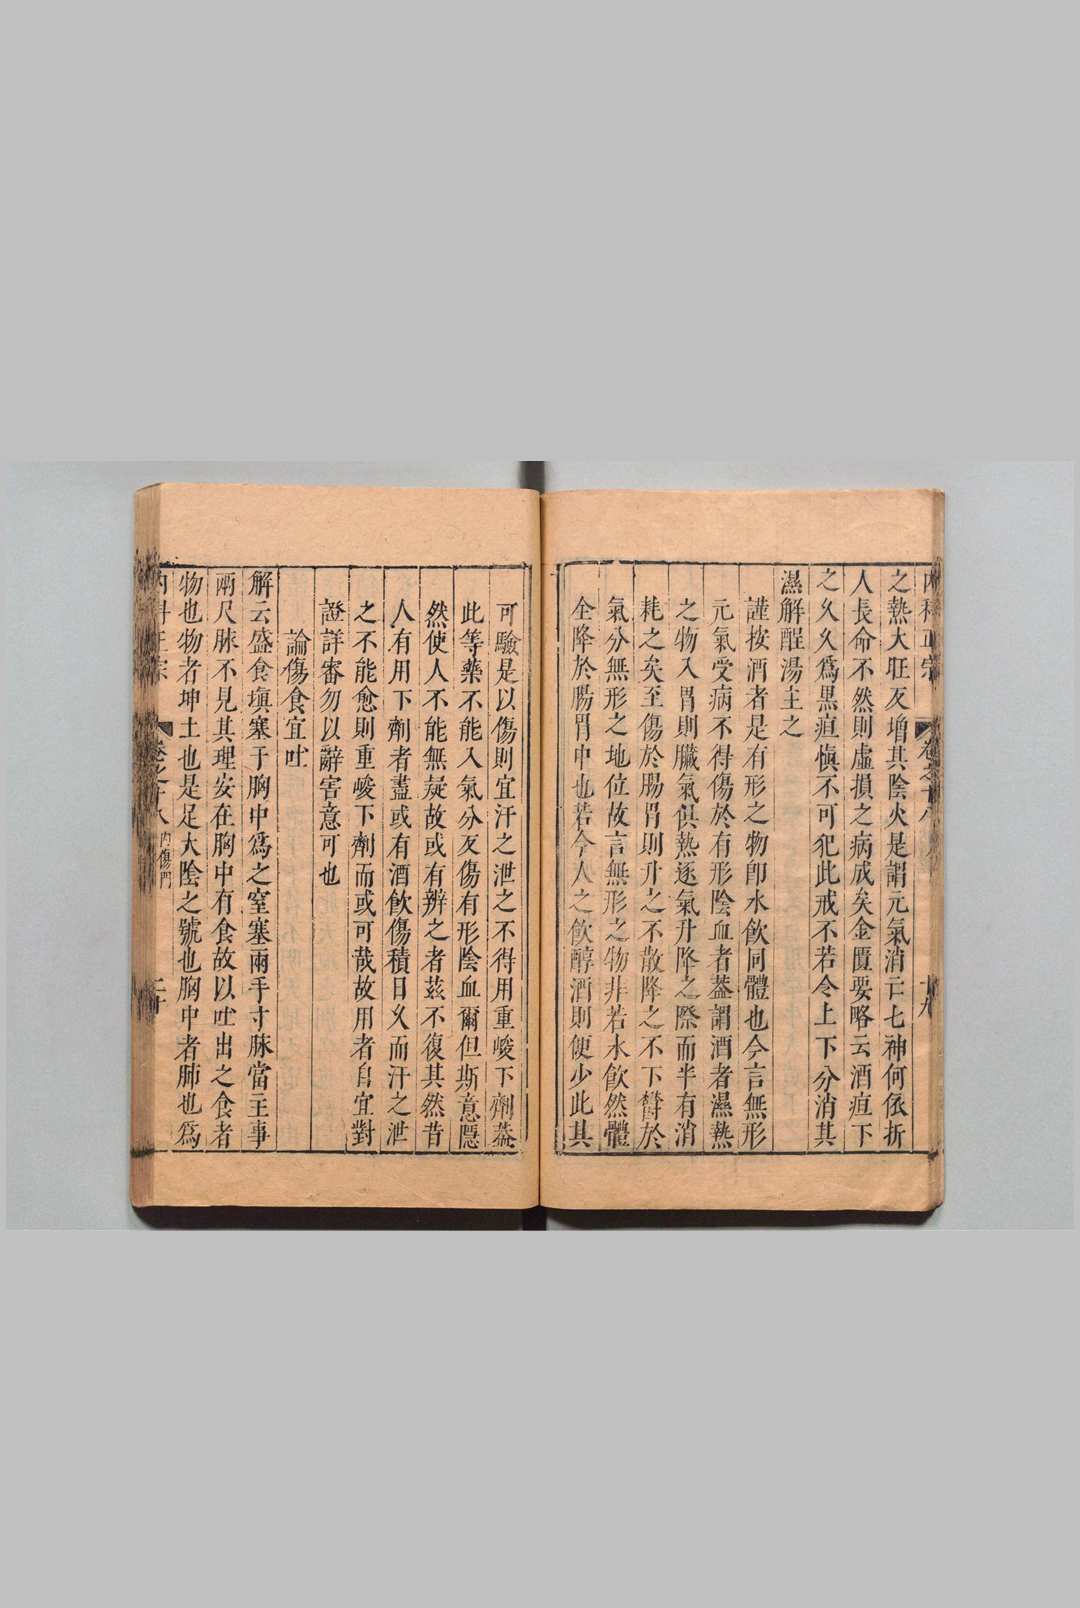 內科正宗 卷之十八 十九
之熱大旺反增其陰火是謂元氣消亡七神何依折
人長命不然則虛損之病成矣金匱要略云酒疸下
之久久爲黑疸愼不可犯此戒不若令上下分消其
濕解酲湯主之
謹按酒者是有形之物卽水飲同體也今言無形
元氣受病不得傷於有形陰血者葢謂酒者濕熱
之物入胃則臟氣俱熱逐氣升降之際而半有消
耗之矣至傷於腸胃則升之不散降之不下欝於
氣分無形之地位故言無形之物非若水飲然體
全降於腸胃中也若今人之飲醇酒則便少此其
可驗是以傷則宜汗之泄之不得用重峻下劑葢
此等藥不能入氣分反傷有形陰血爾但斯意隱
然使人不能無疑故或有辨之者茲不復其然昔
人有用下劑者盡或有酒飲傷積日久而汗之泄
之不能愈則重峻下劑而或可哉故用者自宜對
證詳審勿以辭害意可也
論傷食宜吐
解云盛食塡塞于胸中爲之窒塞兩手寸脉當主事
兩尺脉不見其理安在胸中有食故以吐出之食者
物也物者坤土也是足太陰之號也胸中者肺也爲
內科正宗 卷之十八 內傷門 二十